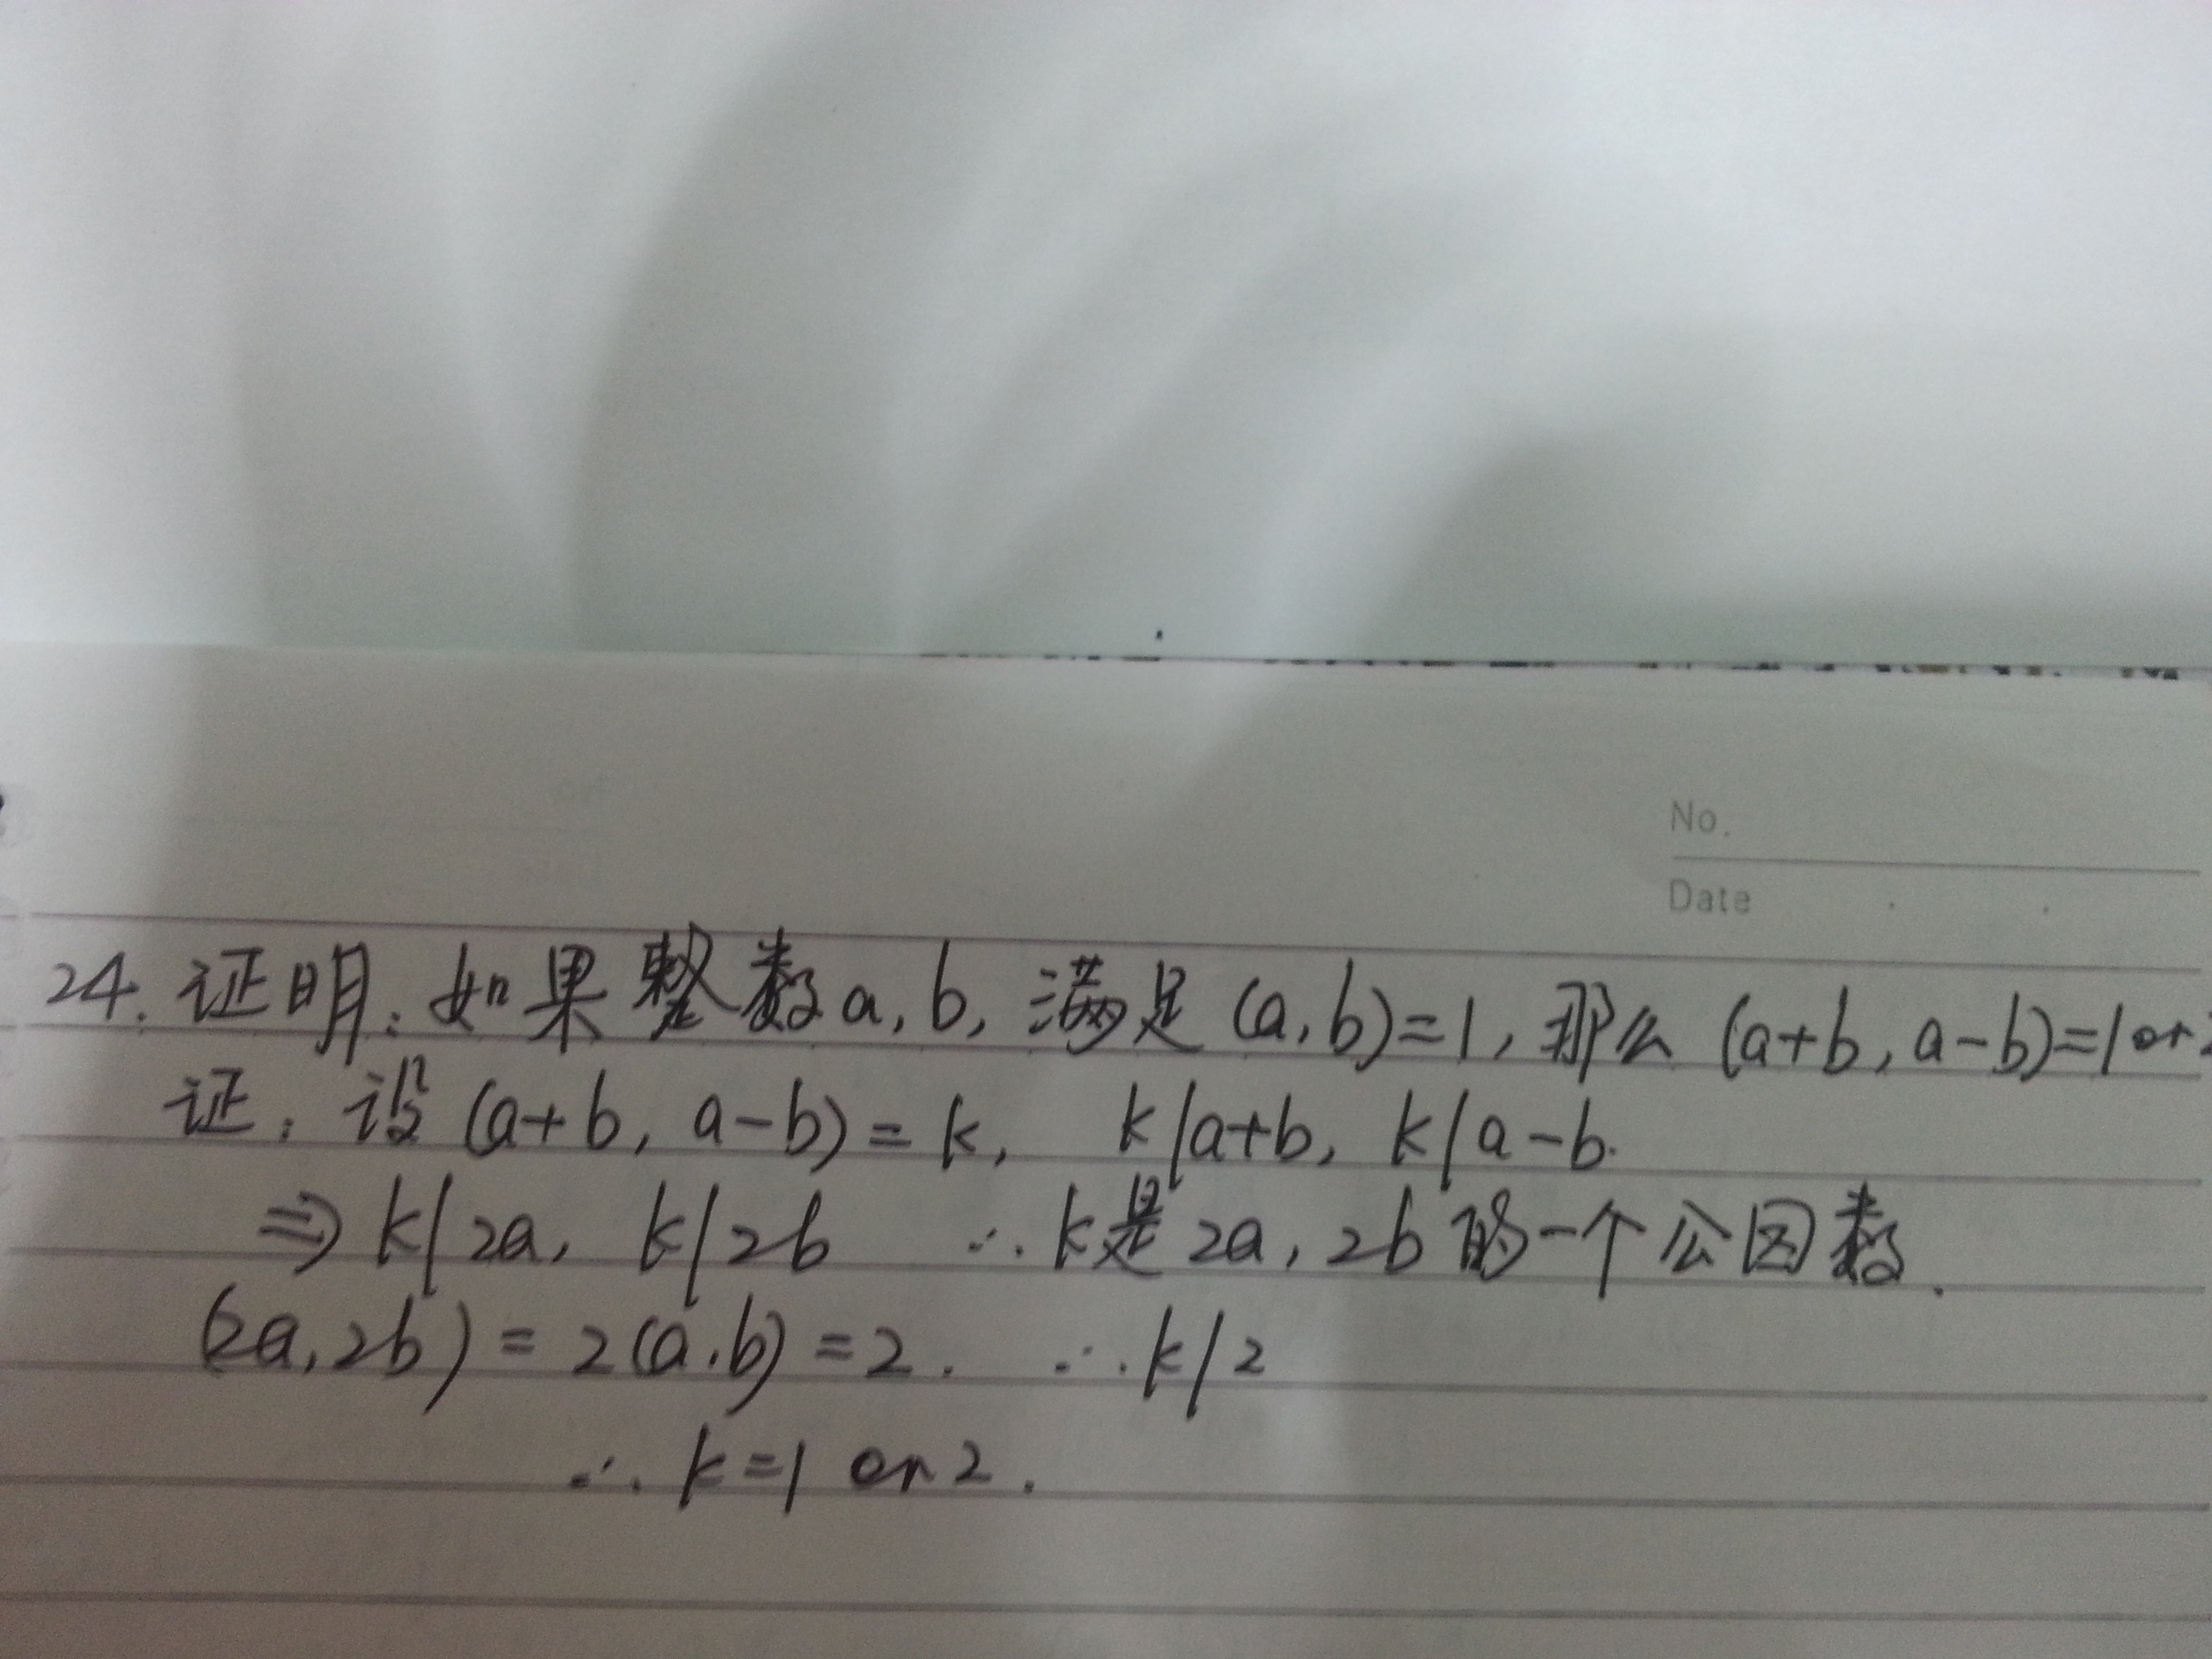 No.
Date
24. 证明: 如果整数a, b, 满足 (a, b)=1, 那么 (a+b, a-b)=1 or 2
证: 设 (a+b, a-b)=k, k|a+b, k|a-b.
⇒ k|2a, k|2b ∴ k是 2a, 2b 的一个公因数.
(2a, 2b) = 2(a.b) = 2. ∴ k|2
∴ k=1 or 2.